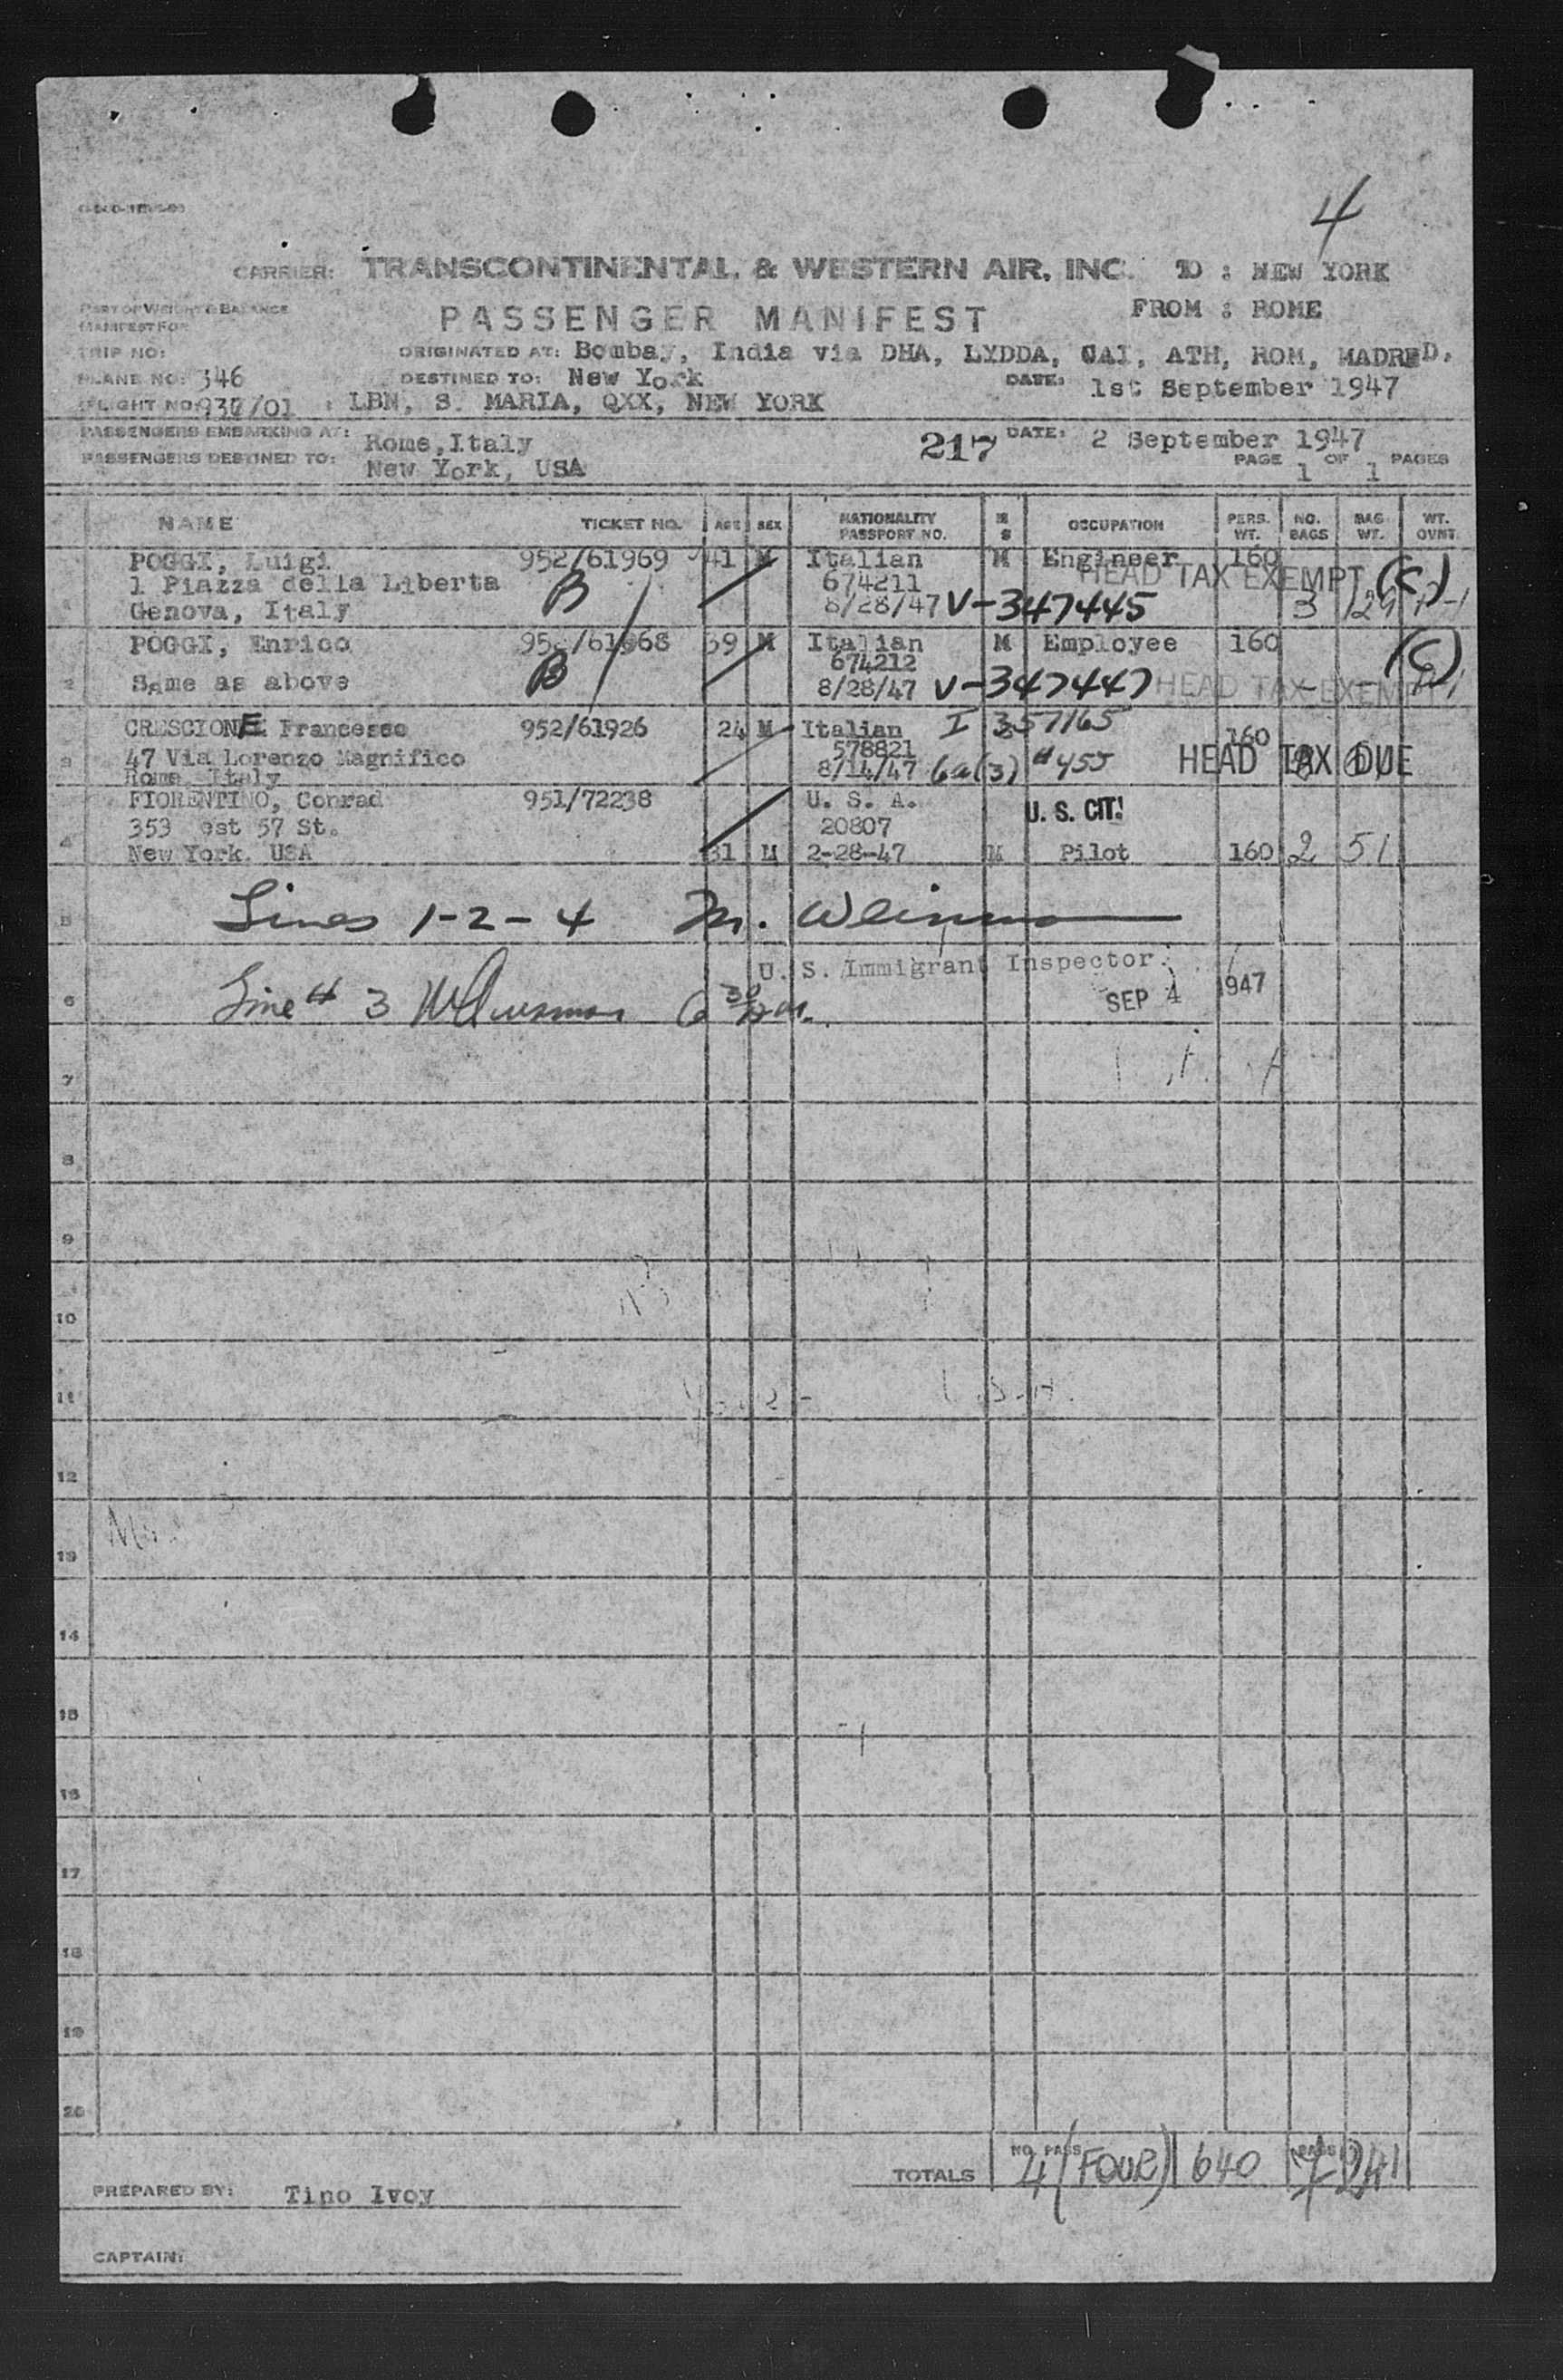 4
CARRIER: TRANSCONTINENTAL & WESTERN AIR, INC. TO : NEW YORK
PART OF WEIGHT & BALANCE
MANIFEST FOR
PASSENGER MANIFEST FROM : ROME
TRIP NO: ORIGINATED AT: Bombay, India via DHA, LYDDA, CAI, ATH, ROM, MADRED,
PLANE NO: 346 DESTINED TO: New York DATE: 1st September 1947
FLIGHT NO: LBN, S. MARIA, QXX, NEW YORK
PASSENGERS EMBARKING AT: Rome, Italy 217 DATE: 2 September 1947
PASSENGERS DESTINED TO: New York, USA PAGE 1 OF 1 PAGES
NAME TICKET NO. AGE SEX NATIONALITY PASSPORT NO. M S OCCUPATION PERS. WT. NO. BAGS BAG WT. WT. OVNT.
POGGI, Luigi 952/61969 41 M Italian M Engineer 160
1 Piazza della Liberta B 674211 HEAD TAX EXEMPT (C)
1 Genova, Italy 8/28/47 V-347445 3
POGGI, Enrico 952/61968 39 M Italian M Employee 160 (C)
B 674212
2 Same as above 8/28/47 V-347447 HEAD TAX EXEMPT
CRESCIONE Francesco 952/61926 24 M Italian I 357165 160
3 47 Via Lorenzo Magnifico 578821 HEAD TAX DUE
Rome, Italy 8/14/47 6a(3) #455
FIORENTINO, Conrad 951/72238 U. S. A. U. S. CIT.
353 est 57 St. 20807
4 New York, USA 31 M 2-28-47 M Pilot 160 2 51
5 Lines 1-2-4 M.
U. S. Immigrant Inspector.
6 Line # 3 6 30 SEP 4 1947
7
8
9
10
11
12
13
14
15
16
17
18
19
20
TOTALS NO. PASS 4 (Four) 640 241
PREPARED BY: Tino Ivoy
CAPTAIN: